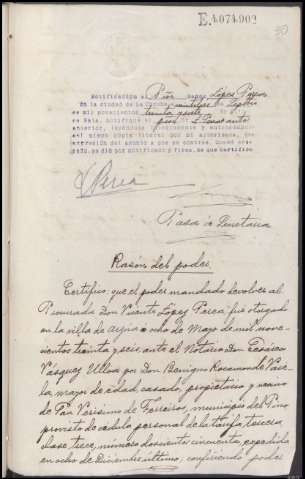 E.4074902
Notificación a Sr. López Perea
En la ciudad de La Coruña
de mil novecientos treinta y siete
de Sala, notifiqué el
anterior, leyéndole íntegramente y entregándole
en el mismo copia literal por mí autorizada, con
expresión del asunto a que se contrae. Quedó ent
notificado y firma, de que certifico
V. Perea
Pasa a Secretaría
Razón del poder
Certifico, que el poder mandado devolver al
Procurador Don Vicente López Perea fué otorgado
en la villa de a ocho de Mayo de mil nove-
cientos treinta y seis, ante el Notario Don
Vázquez Ulloa por Don Benigno Rocamonde Vare-
la, mayor de edad, casado, propietario y vecino
de San Verísimo de Ferreiros, municipio del Pino
provisto de cédula personal de la tarifa tercera,
clase trece, número doscientos cincuenta, expedida
en ocho de Diciembre último, confiriendo poder